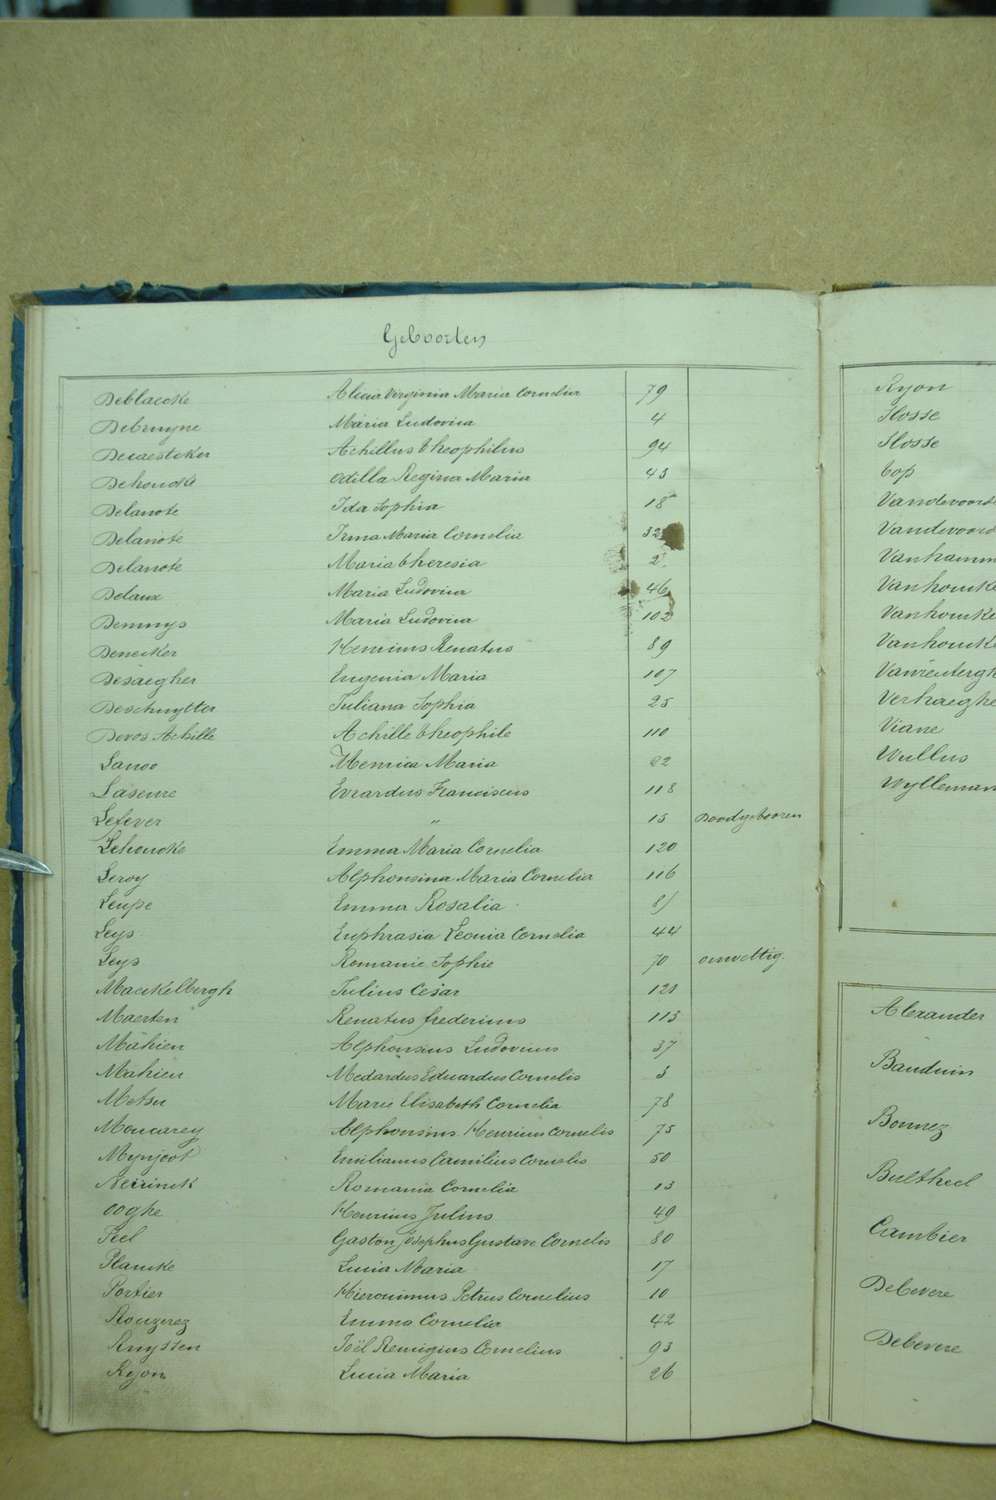 Geboorten
Deblaecke Alicia Virginia Maria Cornelia 79
Debruyne Maria Ludovica 4
Decaesteker Achillus Theophilus 94
Dehoucke Odilla Regina Maria 43
Delanote Ida Sophia 18
Delanote Irma Maria Cornelia 32
Delanote Maria Theresia 2
Delaux Maria Ludovica 46
Demuys Maria Ludovica 102
Denecker Henricus Renatus 89
Desaegher Eugenia Maria 107
Deschuytter Juliana Sophia 25
Devos Achille Achille Theophile 110
Lanoo Henrica Maria
Laseure Evrardus Franciscus 118
Lefever " 15 Doodgebooren
Lehoucke Emma Maria Cornelia 120
Leroy Alphonsina Maria Cornelia 116
Leupe Emma Rosalia
Leys Euphrasia Leonia Cornelia 44
Leys Romanie Sophie 70 onwettig
Maeckelbergh Julius Cesar 121
Maerten Renatus fredericus 113
Mahieu Alphonsius Ludovicus 37
Mahieu Medardus Eduardus Cornelis 3
Metsu Marie Elisabeth Cornelia 78
Moucarey Alphonsius Henricus Cornelis 75
Mynjoot Emilianus Camilius Cornelis 50
Neirinck Romania Cornelia 13
Ooghe Henricus Julius 49
Piel Gaston Josephus Gustave Cornelis 80
Plancke Lucia Maria 17
Portier Hieronimus Petrus Cornelius 10
Rouzerez Emma Cornelia 42
Ruyssen Joël Remigius Cornelius 93
Ryon Lucia Maria 26
Ryon
Slosse
Slosse
Top
Vandevoorde
Vandevoord
Vanhamm
Vanhoucke
Vanhoucke
Vanhoucke
Vanrentergh
Verhaeghe
Viane
Wullus
Wylleman
Alexander
Bauduin
Bonnez
Bultheel
Cambier
Delevere
Delevere